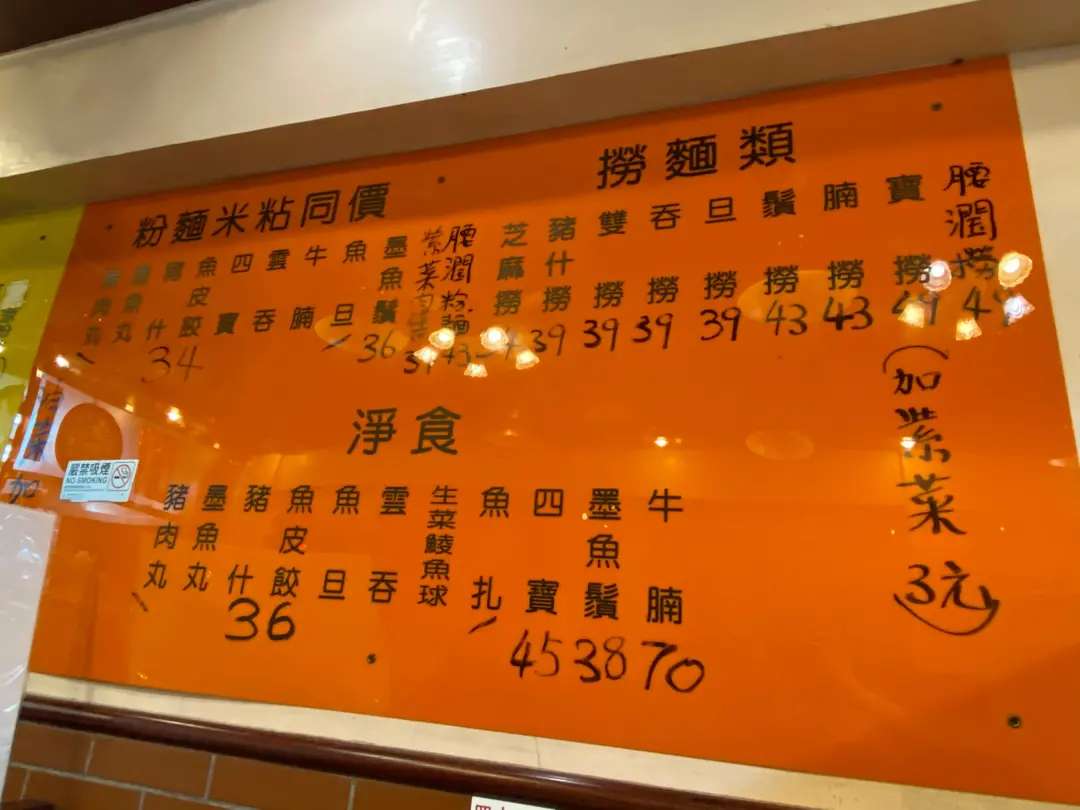 粉麵米粘同價
墨魚丸
豬什
魚皮餃
四寶
雲吞
牛腩
魚旦
34
墨魚鬚
36
紫菜
腰潤粉麵
43
撈麵類
芝麻撈
豬什撈
39
雙撈
39
吞撈
39
旦撈
39
鬚撈
43
腩撈
43
寶撈
49
腰潤撈
49
(加紫菜3元)
淨食
豬肉丸
墨魚丸
豬什
魚皮餃
魚旦
雲吞
生菜鯪魚球
魚扎
36
四寶
45
墨魚鬚
38
牛腩
70
嚴禁吸煙
NO SMOKING
加